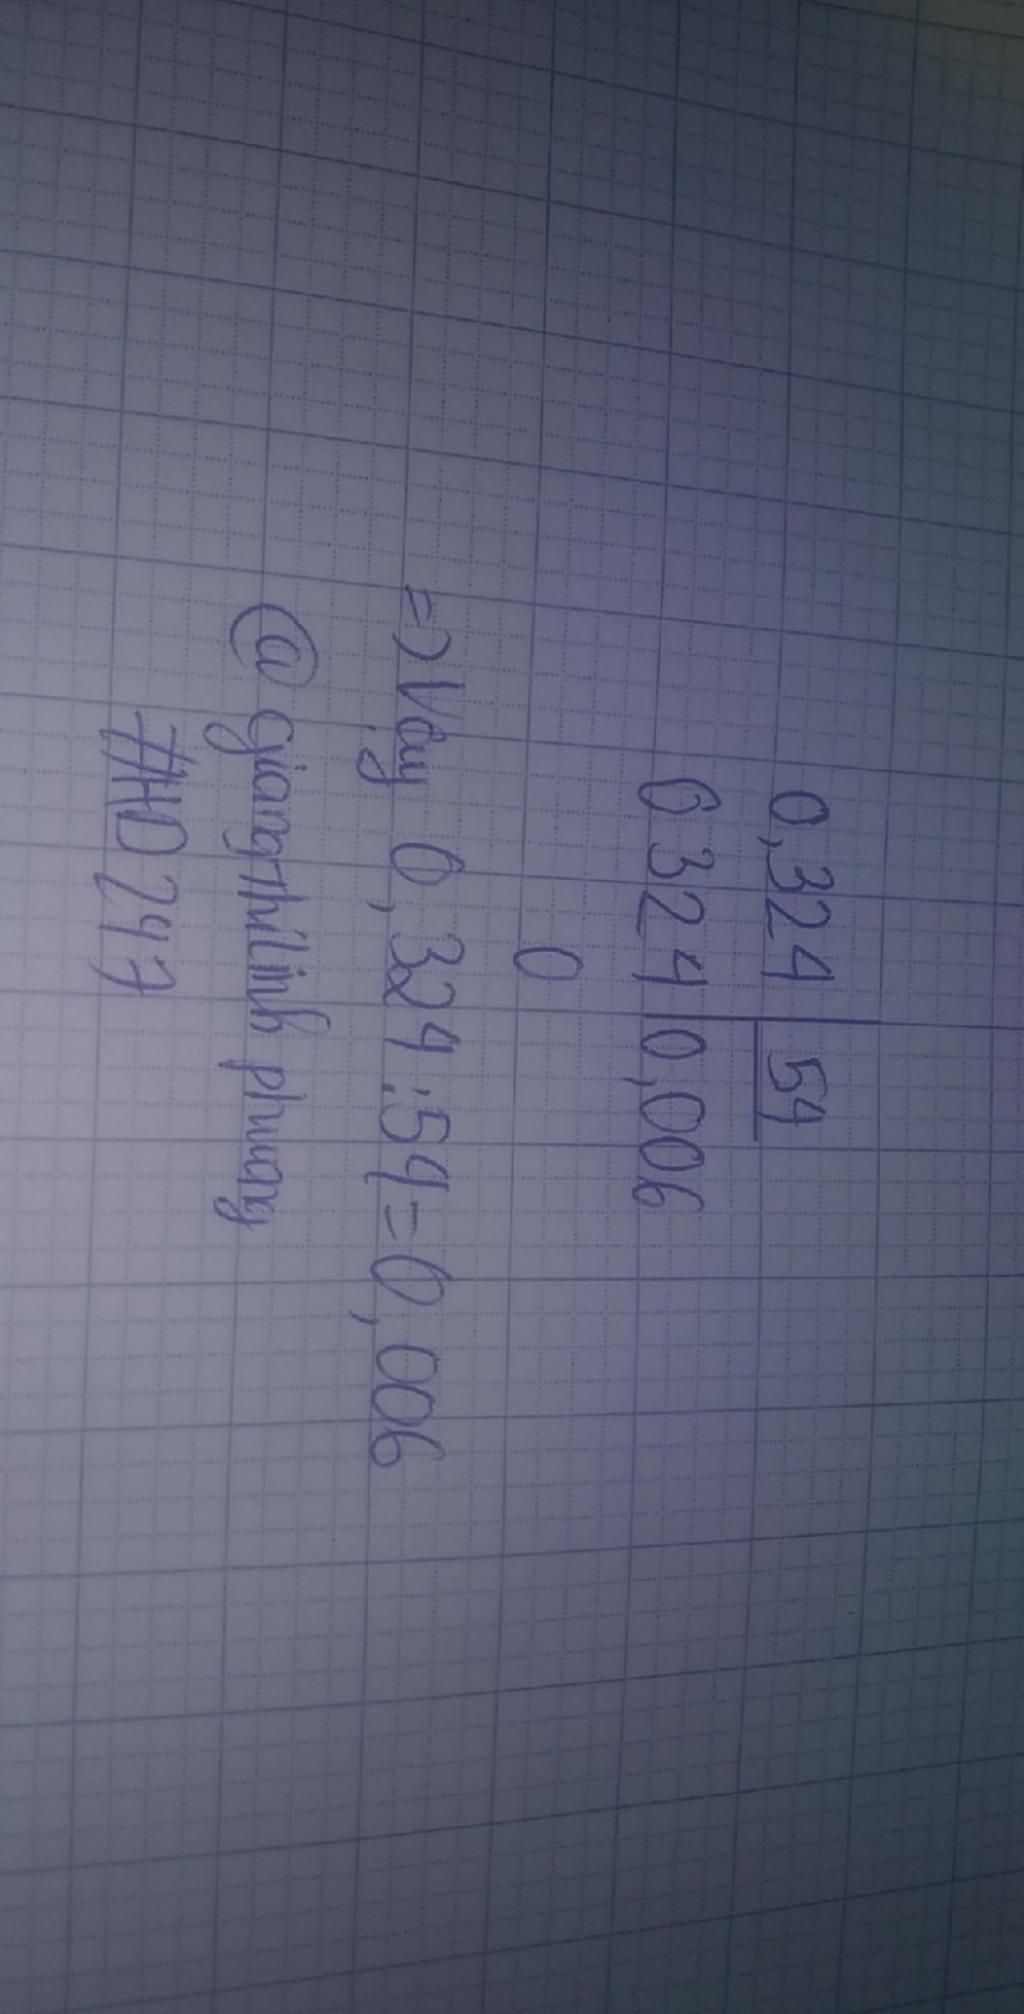 0,324 | 54
0 324 | 0,006
0
=> Vậy 0,324 : 54 = 0,006
@ giangthilinh phuong
#HD 247